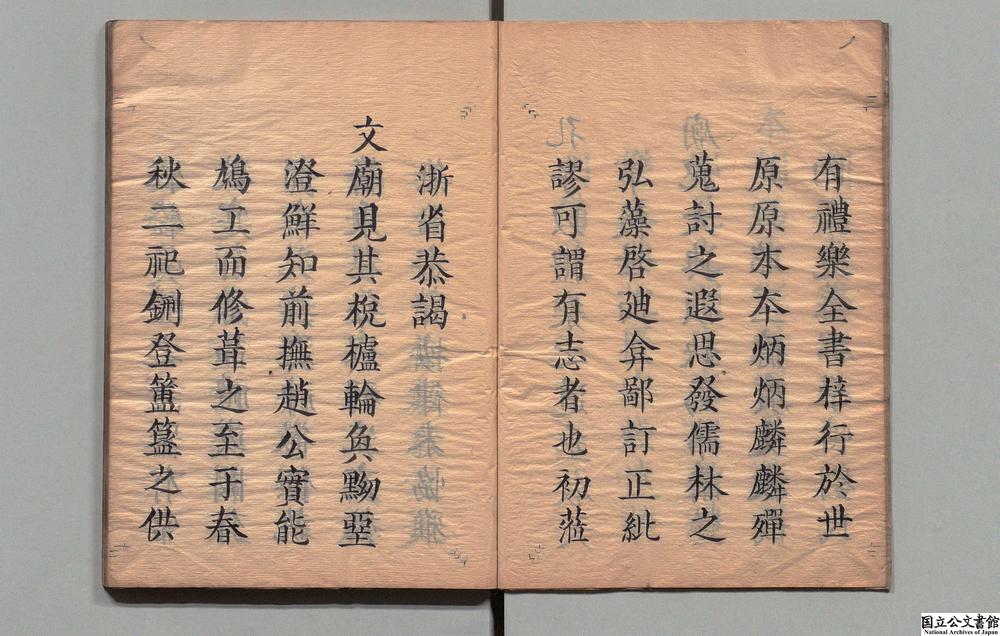 有禮樂全書梓行於世
原原本本炳炳麟麟殫
蒐討之遐思發儒林之
弘藻啓迪弇鄙訂正紕
謬可謂有志者也初蒞
浙省恭謁
文廟見其梲櫨輪奐黝堊
澄鮮知前撫趙公實能
鳩工而修葺之至于春
秋二祀鉶登簠簋之供
国立公文書館
National Archives of Japan